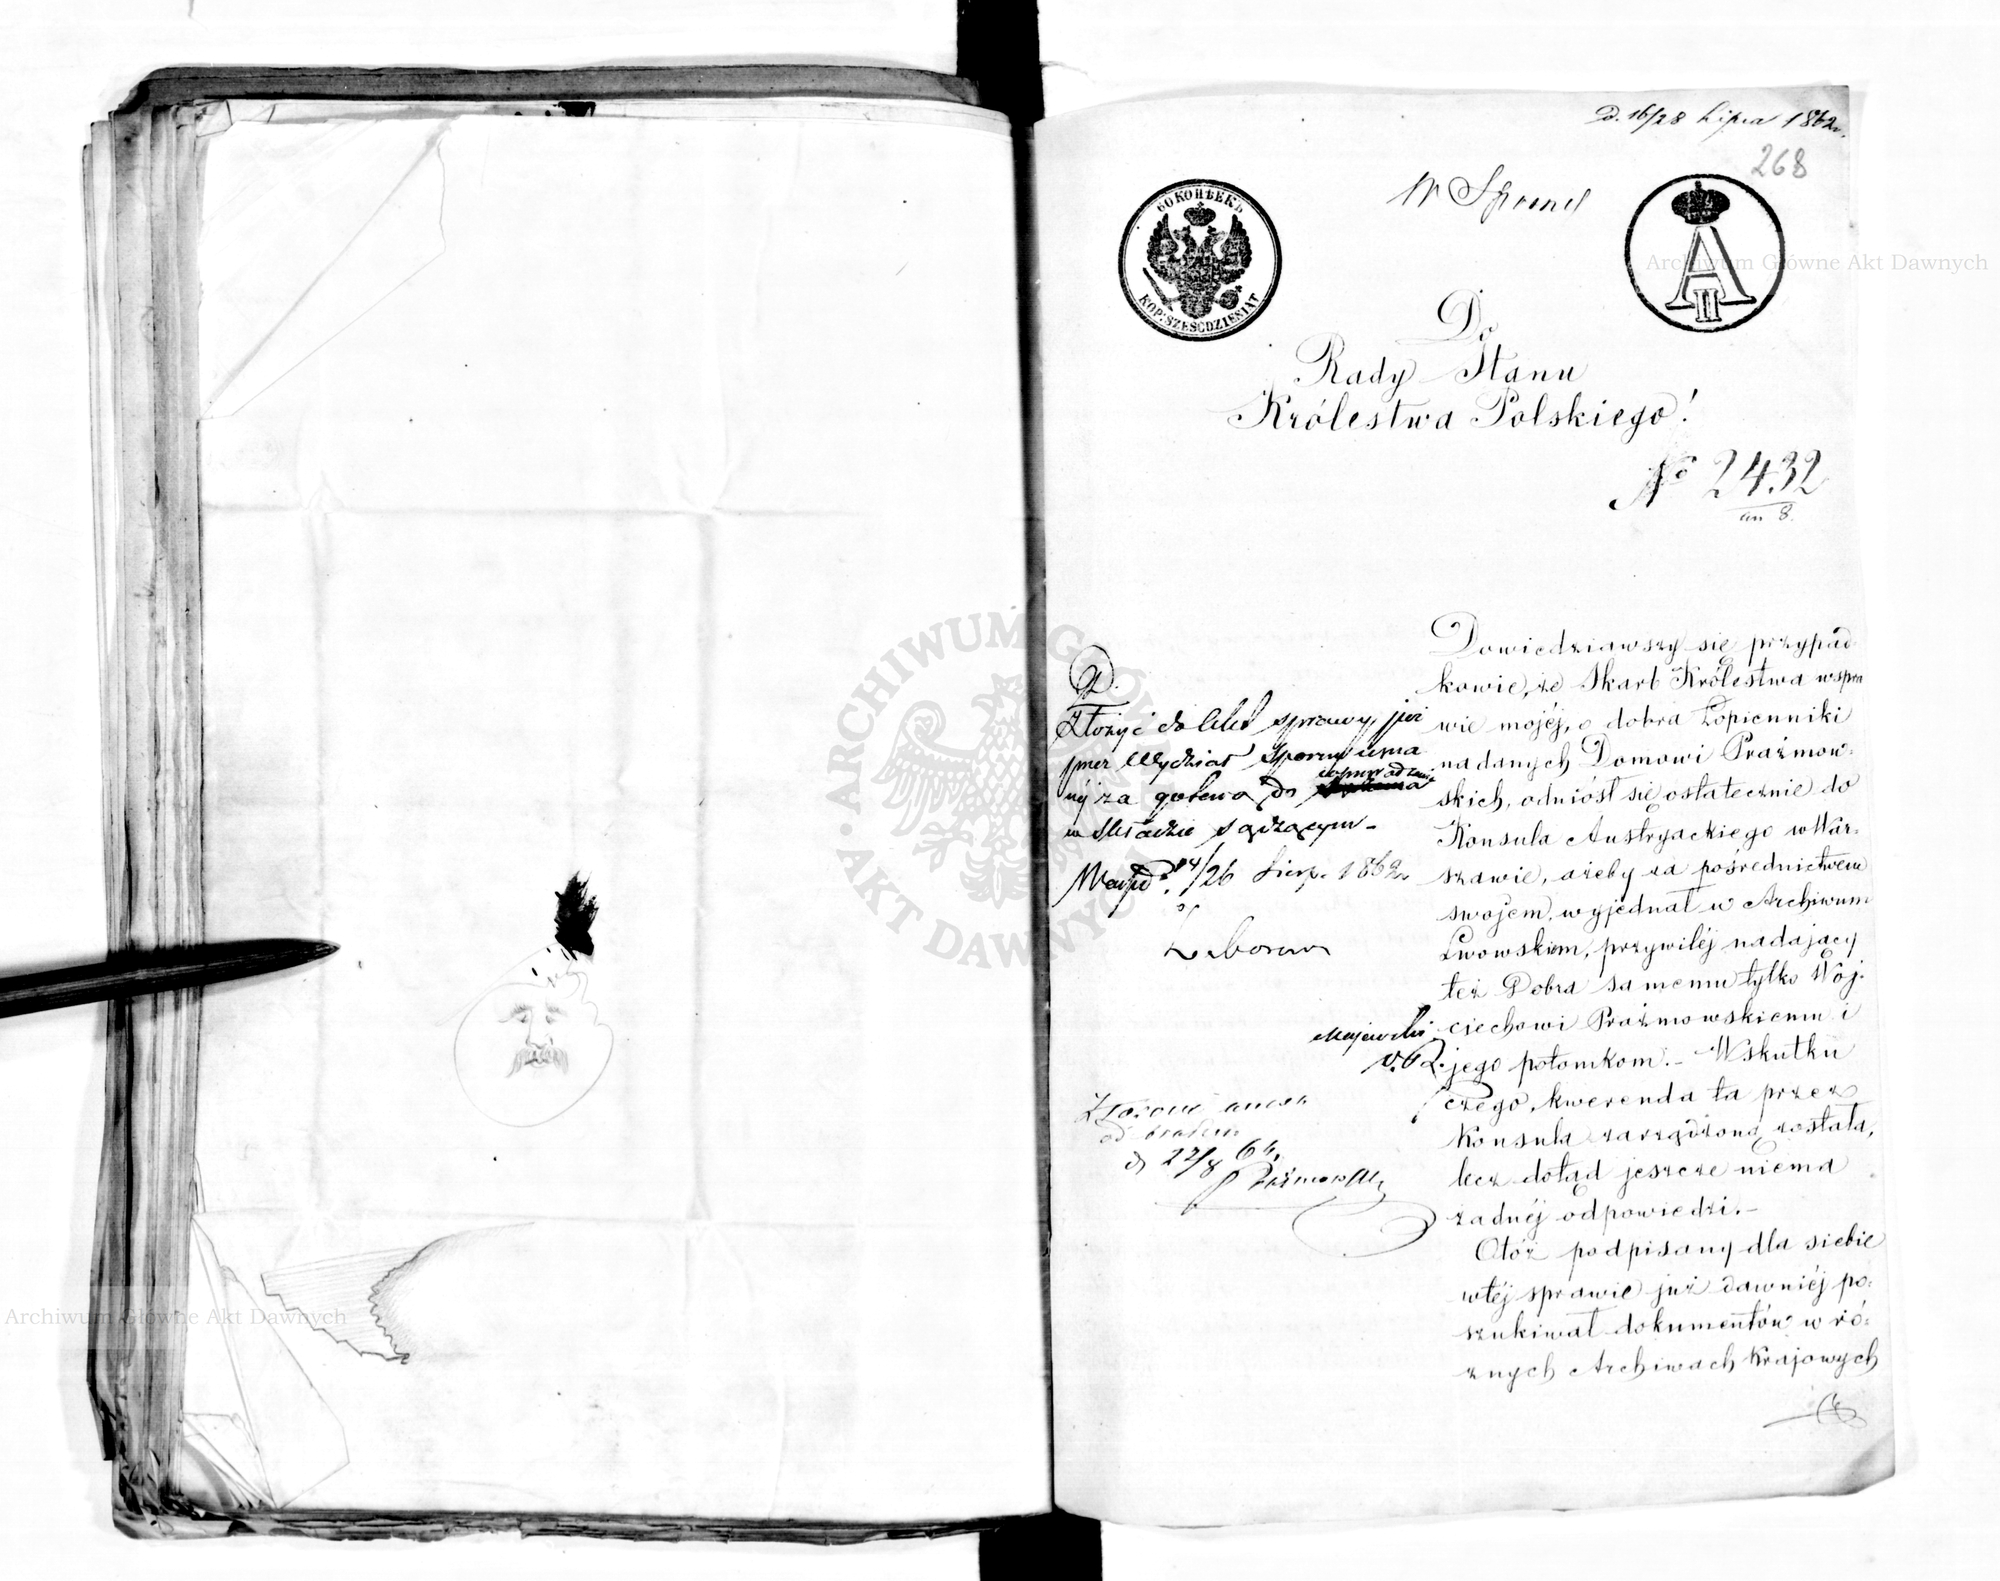 d. 16/28 Lipca 1862 r.
268
W Sporny
60 КОПѢЕКЪ
KOP: SZEŚĆDZIESIĄT
A II
Do
Rady Stanu
Królestwa Polskiego!
No 2432
an 8.
Dowiedziawszy się przypad-
kowie, że Skarb Królestwa wspra
wie mojéj, o dobra Łopienniki
nadanych Domowi Prażmow-
skich, odniósł się ostatecznie do
Konsula Austryackiego w War-
szawie, ażeby za pośrednictwem
swojem, wyjednał w Archiwum
Lwowskiem, przywiléj nadający
też Dobra samemu tylko Woj-
ciechowi Prażmowskiemu i
jego potomkom.- Wskutku
czego, kwerenda ta przez
Konsula zarządzoną została,
lecz dotąd jeszcze niema
żadnéj odpowiedzi.-
Otóż podpisany dla siebie
wtéj sprawie już dawniéj po-
szukiwał dokumentów w ró-
żnych Archiwach Krajowych
Złożyć do Akt sprawy, już
przez Wydział Sporny uzna
ną za gotową do wprowadzenia
w Składzie Sądzącym -
14/26 Sierp. 1862 r
Majewski
Złożone
d 27/8 62
Prażmowski
Archiwum Główne Akt Dawnych
ARCHIWUM GŁÓWNE
AKT DAWNYCH
Archiwum Główne Akt Dawnych